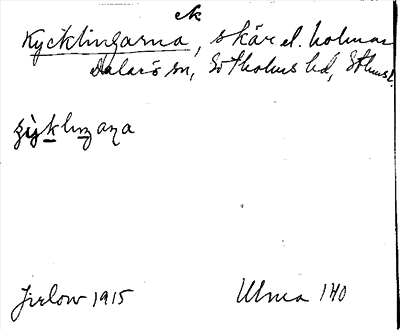 ek
Kycklingarna, skär el. holmar
Dalarö sn, Sotholms hd, Sthms l.
Jirlow 1915 Ulma 140